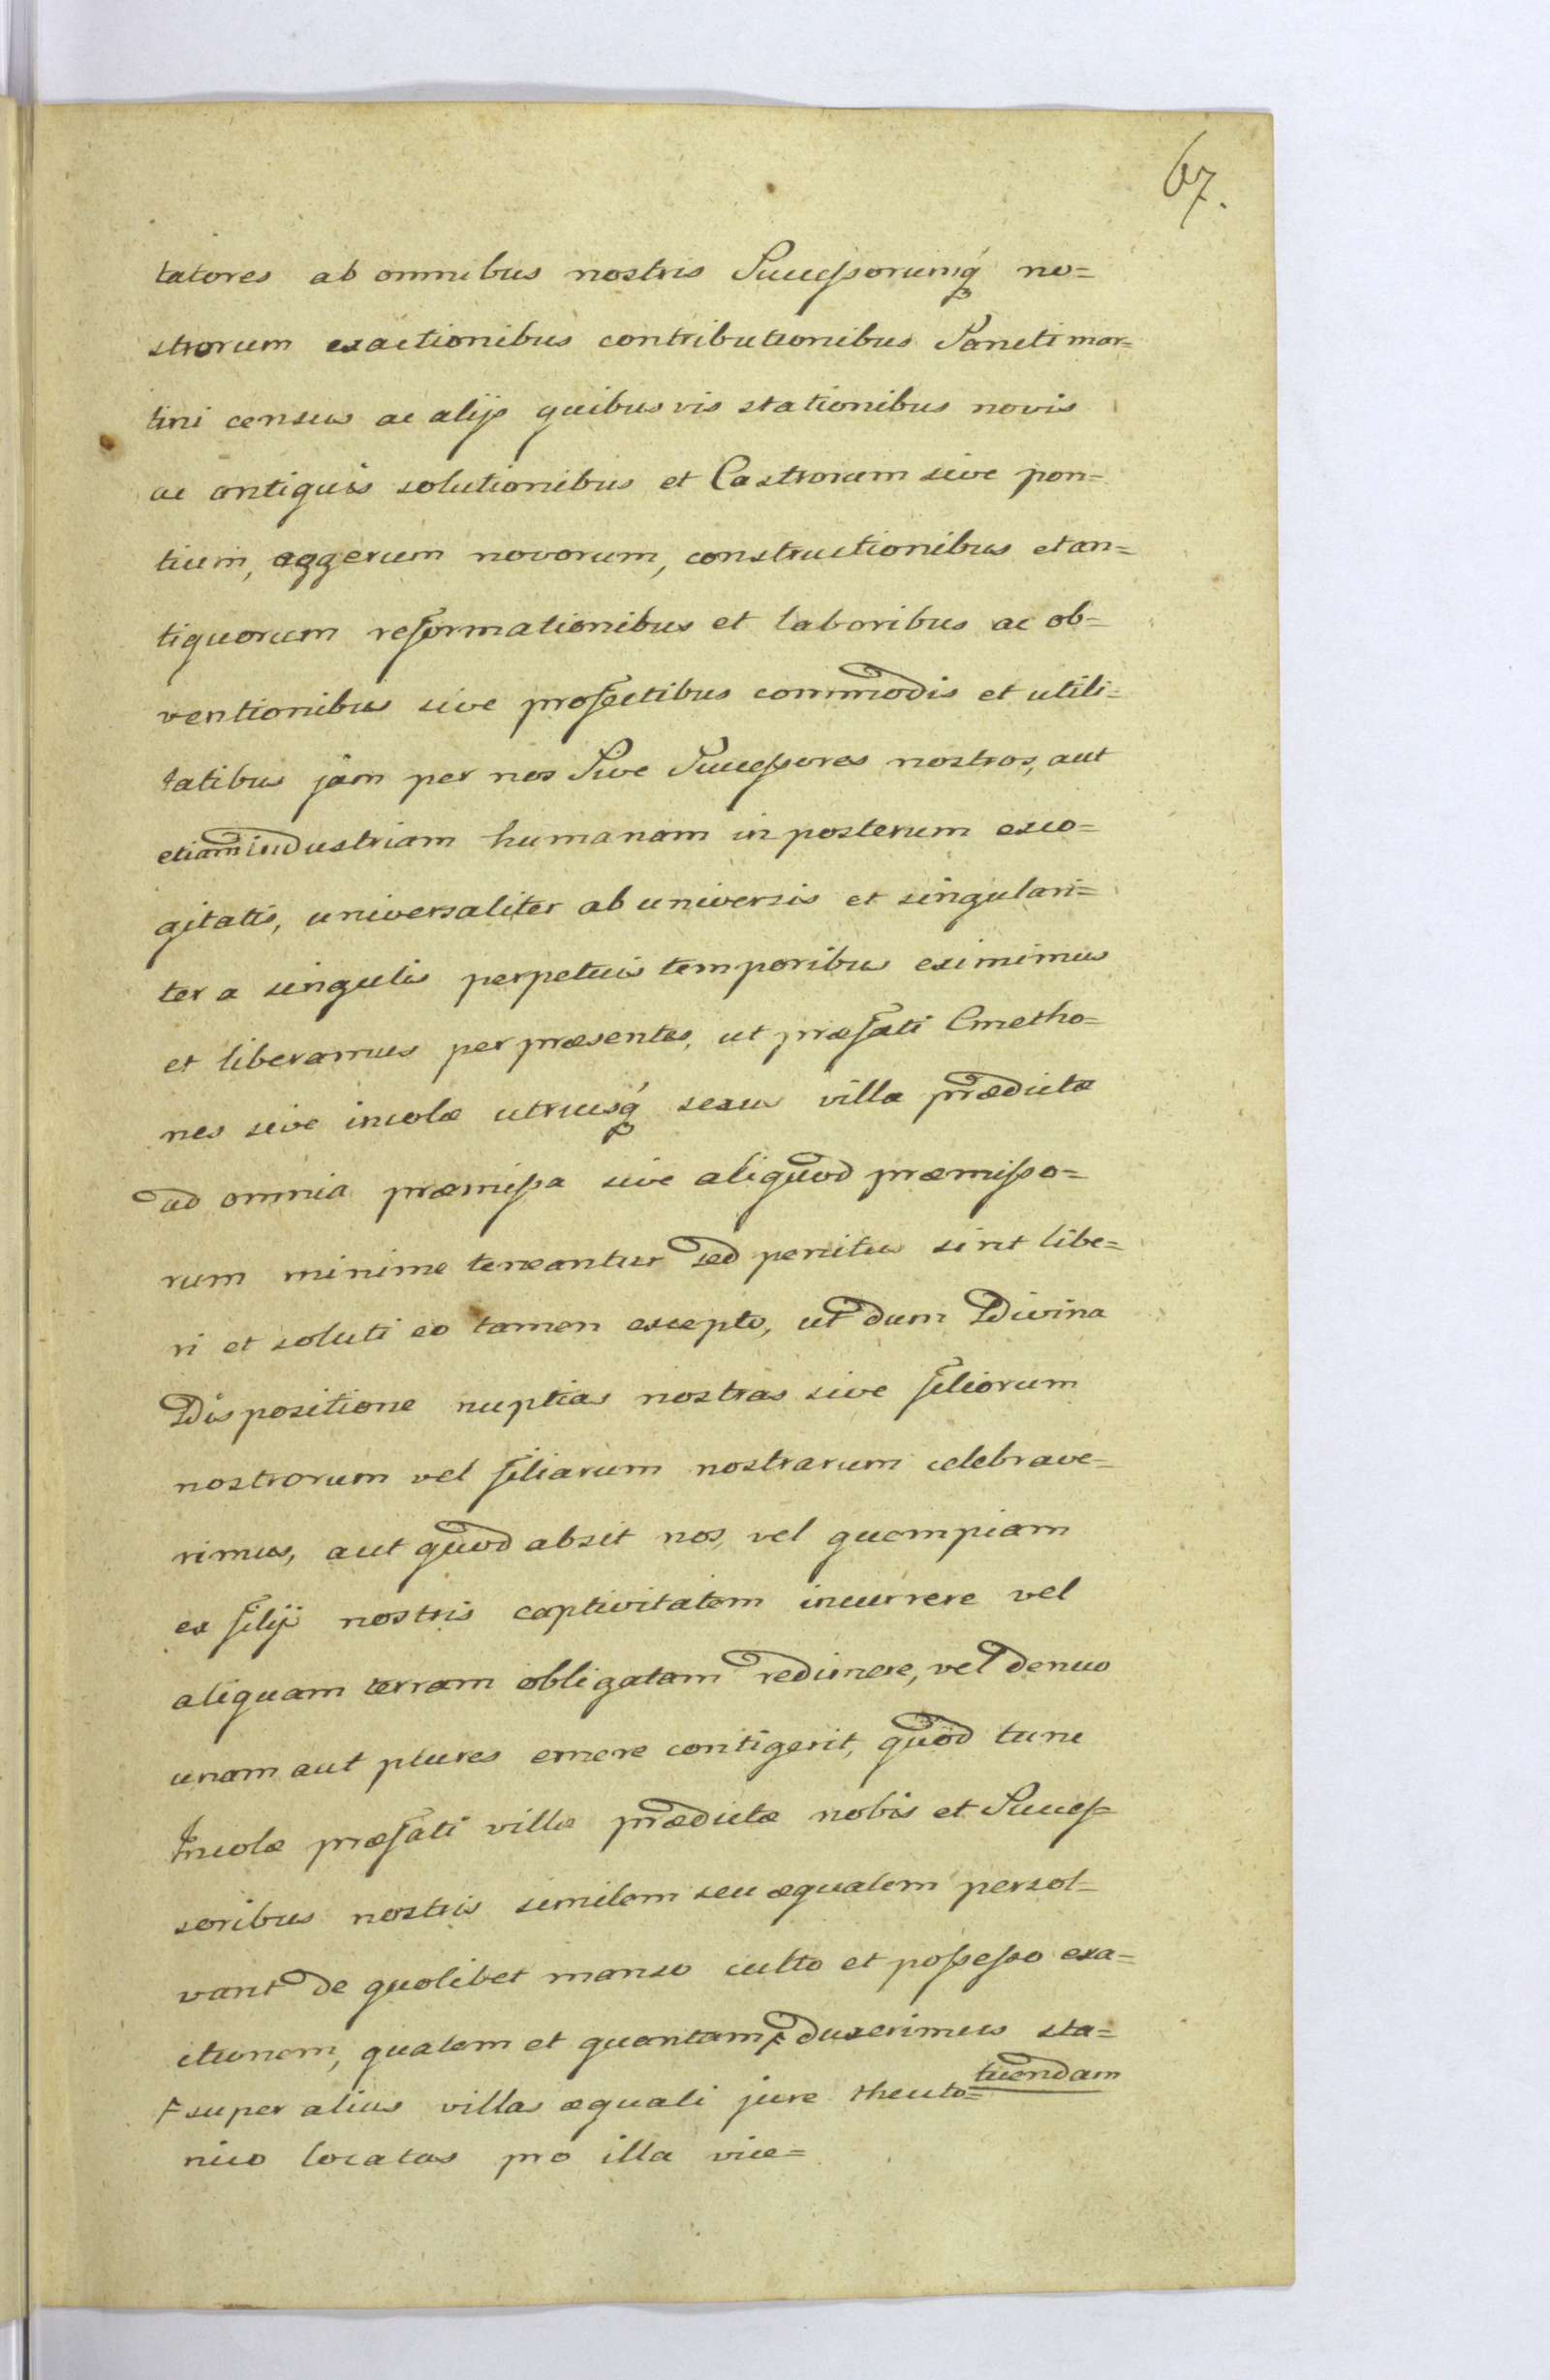 67.
tatores ab omnibus nostris Successorumq́ no=
strorum exactionibus contributionibus Sancti mar=
tini census ac alijs quibus vis stationibus novis
ac antiquis solutionibus et Castrorum sive pon=
tium, aggerum novorum, constructionibus et an=
tiquorum reformationibus et laboribus ac ob=
ventionibus sive profectibus commodis et utili=
tatibus jam per nos Sive Successores nostros, aut
etiam industriam humanam in posterum exco=
gitatis, universaliter ab universis et singulari=
ter a singulis perpetuis temporibus eximimus
et liberamus per præsentes, ut præfati Cmetho=
nes sive incolæ utriusq́ sexus villa prædictæ
ad omnia præmissa sive aliquod præmisso=
rum minime teneantur sed penitus sint libe=
ri et soluti eo tamen excepto, ut dum Divina
Dispositione nuptias nostras sive filiorum
nostrorum vel filiarum nostrarum celebrave=
rimus, aut quod absit nos, vel quempiam
ex filijs nostris captivitatem incurrere vel
aliquam terram obligatam redimere, vel denuo
unam aut plures emere contigerit, quod tunc
Incolæ præfati villæ prædictæ nobis et Succes=
soribus nostris similem seu æqualem persol=
vant de quolibet manso culto et possesso exa=
ctionem, qualem et quantam ⊦ duxerimus sta=
tuendam
⊦ super alius villas æquali jure theuto=
nico locatas pro illa vice=